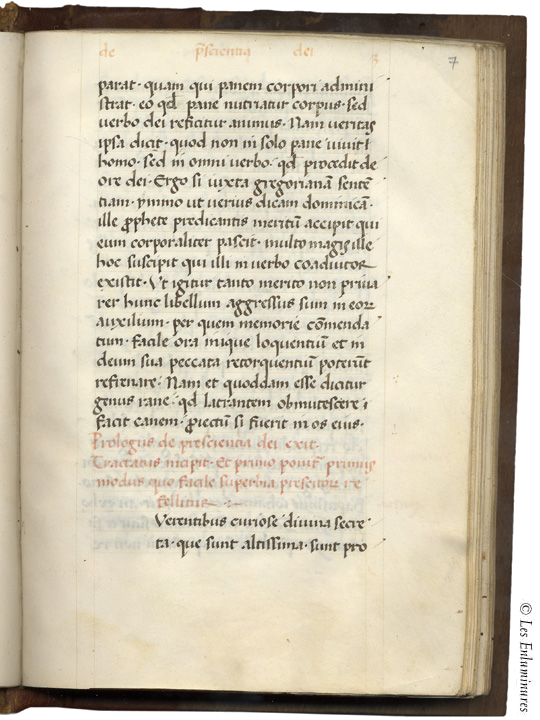 de p̄scientia dei 3
7
parat · quam qui panem corpori admini
strat · eo qd̄ pane nutriatur corpus · sed
verbo dei reficitur animus · Nam veritas
ipsa dicit · quod non in solo pane uiuit
homo · sed in omni uerbo · qd̄ procedit de
ore dei · Ergo si iuxta gregorianā sentē
tiam · ymmo ut uerius dicam dominicā ·
ille ꝓphete predicantis meritū accipit qui
eum corporaliter pascit · multo magis ille
hoc suscipit qui illi in uerbo coadiutor
existit · Vt igitur tanto merito non priua
rer hunc libellum aggressus sum in eoꝝ
auxilium · per quem memorie cōmenda
tum · facile ora inique loquentiū et in
deum sua peccata retorquentiū poterūt
refrenare · Nam et quoddam esse dicitur
genus rane · qd̄ latrantem obmutescere
facit canem · ꝓiectū si fuerit in os eius ·
Prologus de presciencia dei exit ·
Tractatus incipit · Et primo ponit̄ primus
modus quo facile superbia prescitoꝝ re
fellitur
Verentibus curiose diuina secre
ta · que sunt altissima · sunt pro
© Les Enluminures